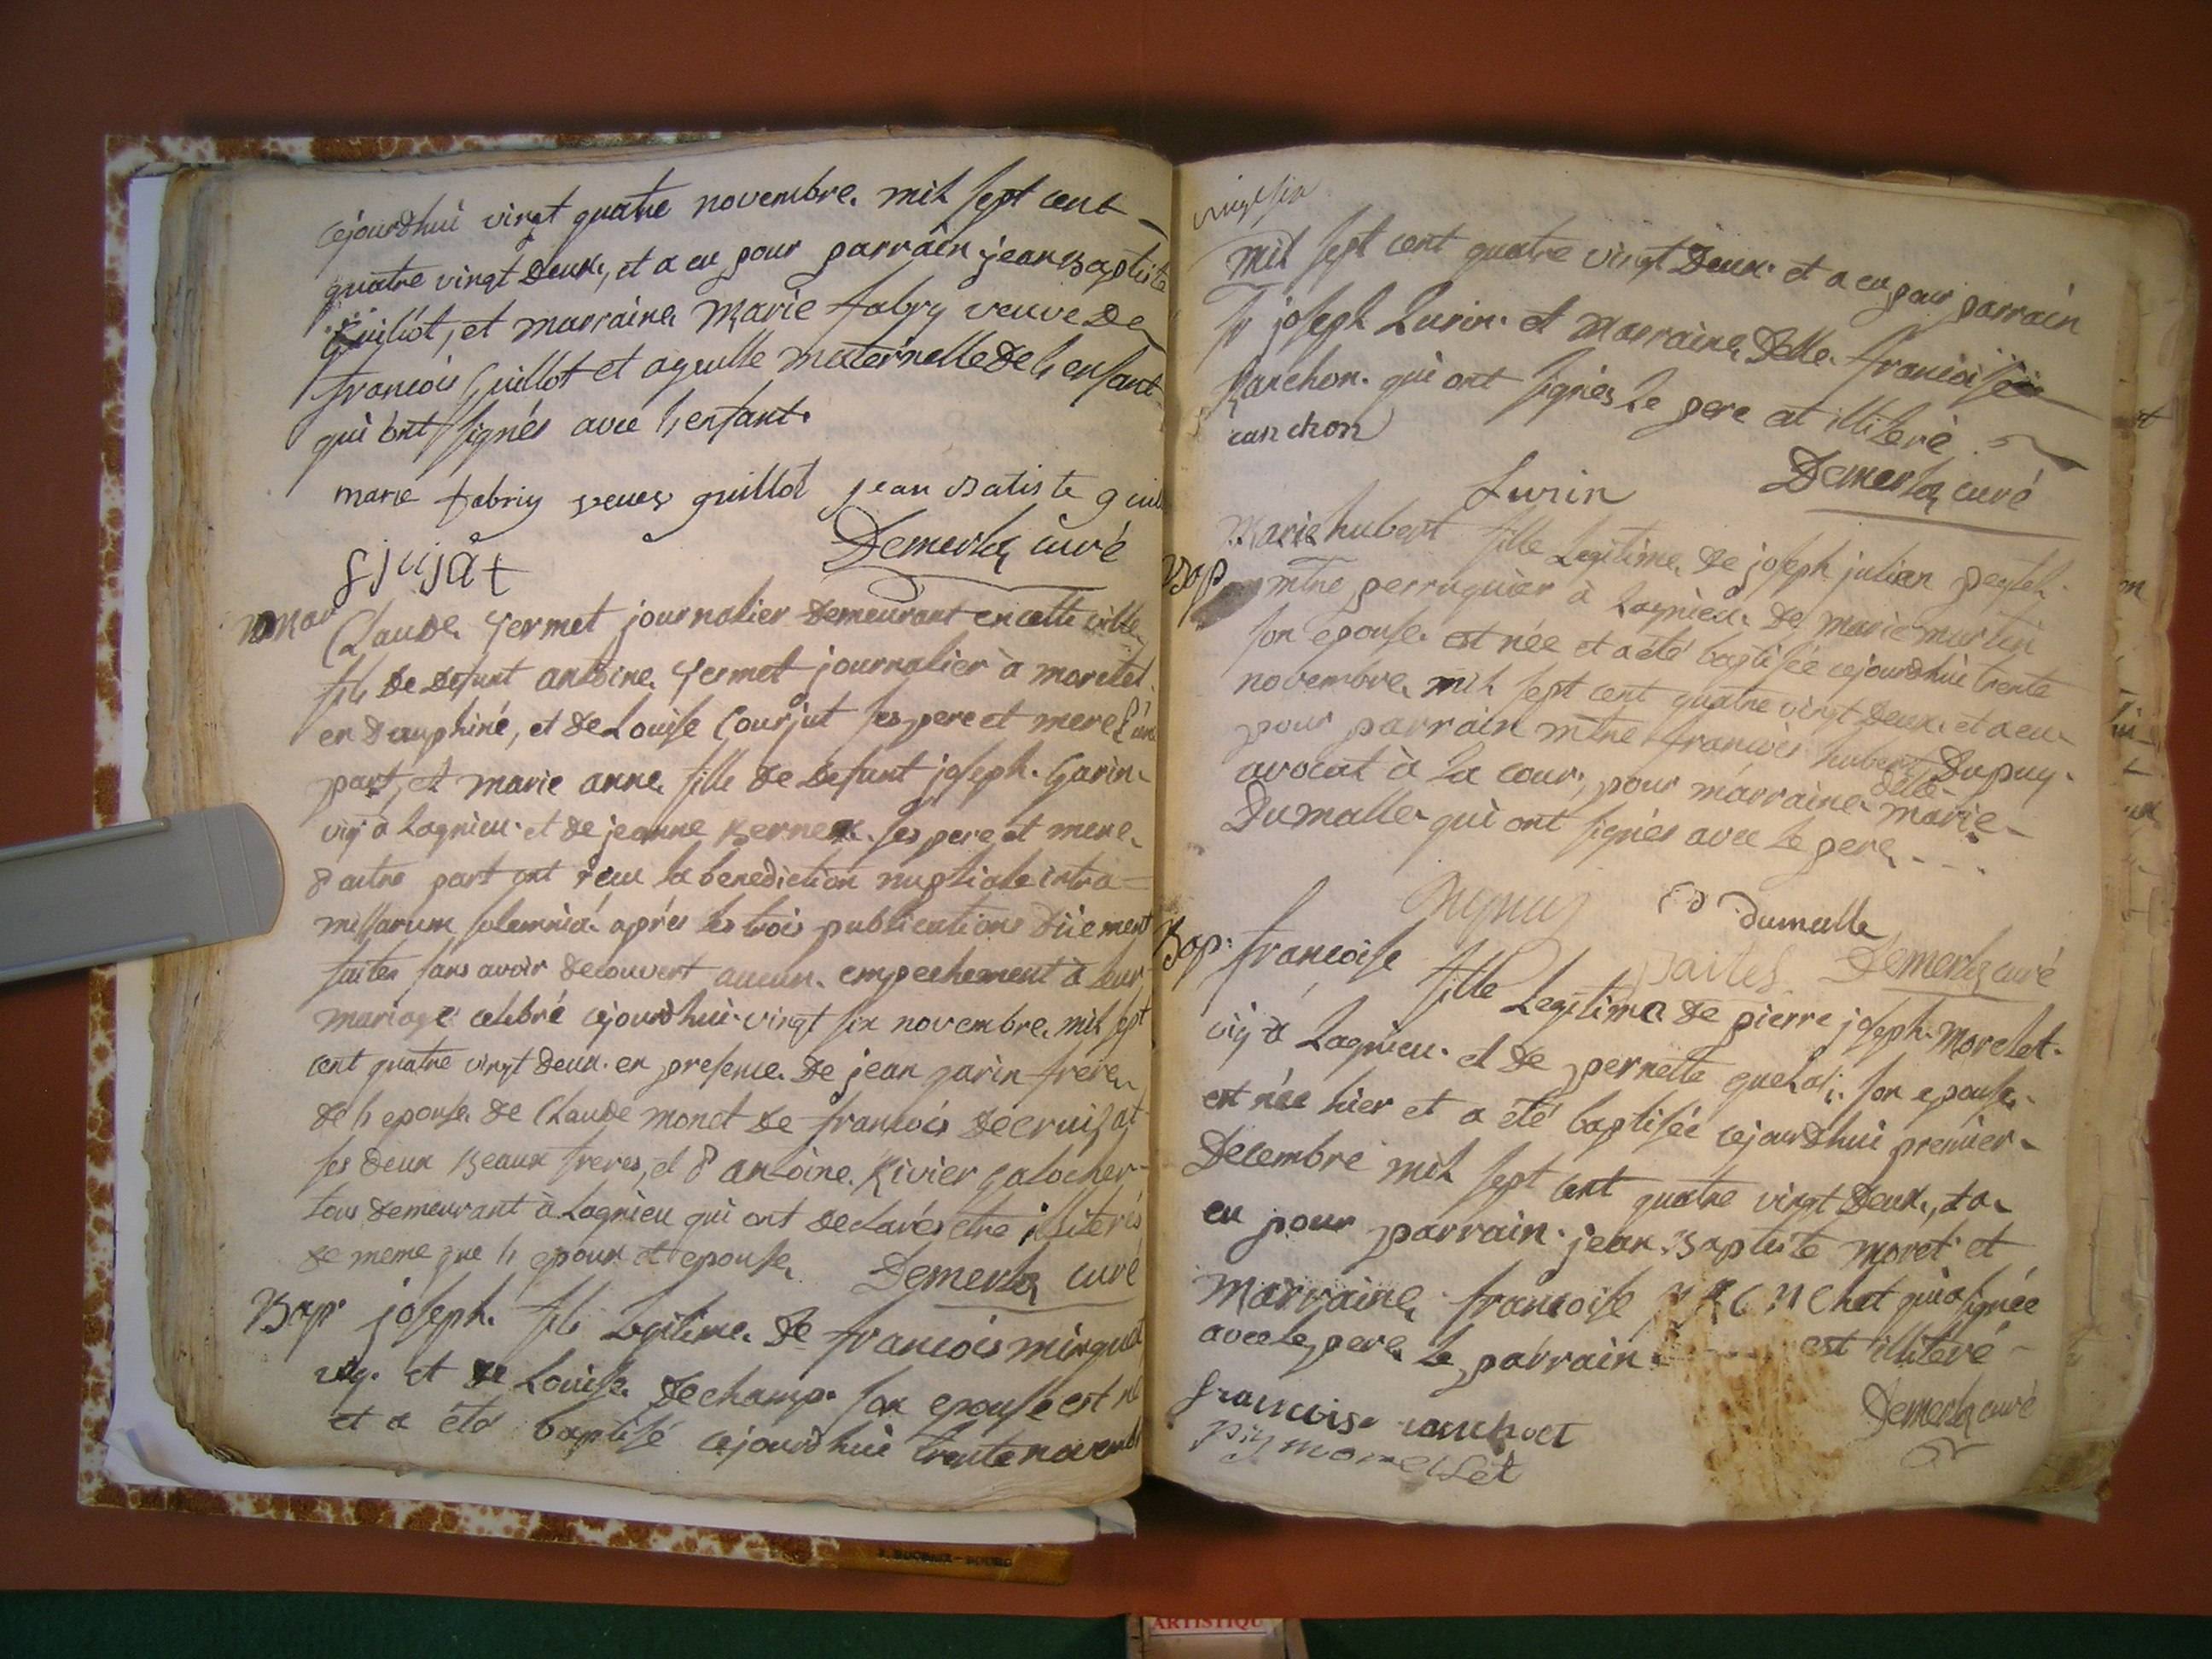 cejourdhui vingt quatre novembre mil sept cent
quatre vingt Deux, et a eu pour parrain jean Baptiste
Guillot, et marraine Marie fabry veuve De
francois Guillot et ayeulle maternelle De l'enfant
qui ont signés avec l'enfant
marie fabriy veuve guillot jean batiste guil
Demerloz curé
mar Claude fermet journalier Demeurant en cette ville
fils De Defunt antoine fermet journalier à moretel
en Dauphiné, et De Louise Courjut ses pere et mere d'une
part, et marie anne fille De Defunt joseph Garin
vig à Lagnieu et De jeanne Bernex ses pere et mere
D'autre part ont reçu la benediction nuptiale intra
missarum solemnia après les trois publications Düement
faites sans avoir Decouvert aucun empechement à leur
mariage celebré cejourdhui vingt six novembre mil sept
cent quatre vingt Deux en presence De jean garin frere
De l'epouse De Claude monet De francois Decruisat
ses Deux Beaux freres, et D'antoine Rivier galocher
tous Demeurant à Lagnieu qui ont Declarés etre illiterés
De meme que l'epoux et epouse Demerloz curé
Bap joseph fils Legitime De francois minguet
vig. et De Louise Dechamp son epouse est né
et a été baptisé cejourdhui trente novembr
vingt six
mil sept cent quatre vingt Deux et a eu pour parrain
sr joseph Lurin et Marraine Delle francoise
Ranchon qui ont signés Le pere est illiteré
ranchon
Lurin Demerloz curé
Bap Marie hubert fille Legitime De joseph julian
mtre perruquier à Lagnieu De marie martin
son epouse est née et a été baptisée cejourdhui trente
novembre mil sept cent quatre vingt Deux et a eu
pour parrain mtre francois hubert Dupuy
avocat à La cour, pour marraine Delle marie
Dumalle qui ont signés avec Le pere
Dupuy Dumalle
Demerloz curé
Bap: francoise fille Legitime De pierre joseph Morelet
vig à Lagnieu et De pernette son epouse
est née hier et a été baptisée cejourdhui premier
Decembre mil sept cent quatre vingt Deux, et a
eu pour parrain jean Baptiste moret et
Marraine francoise qui a signée
avec Le pere Le parrain est illiteré
francoise
Demerloz curé
pij morellet
ARTISTIQU